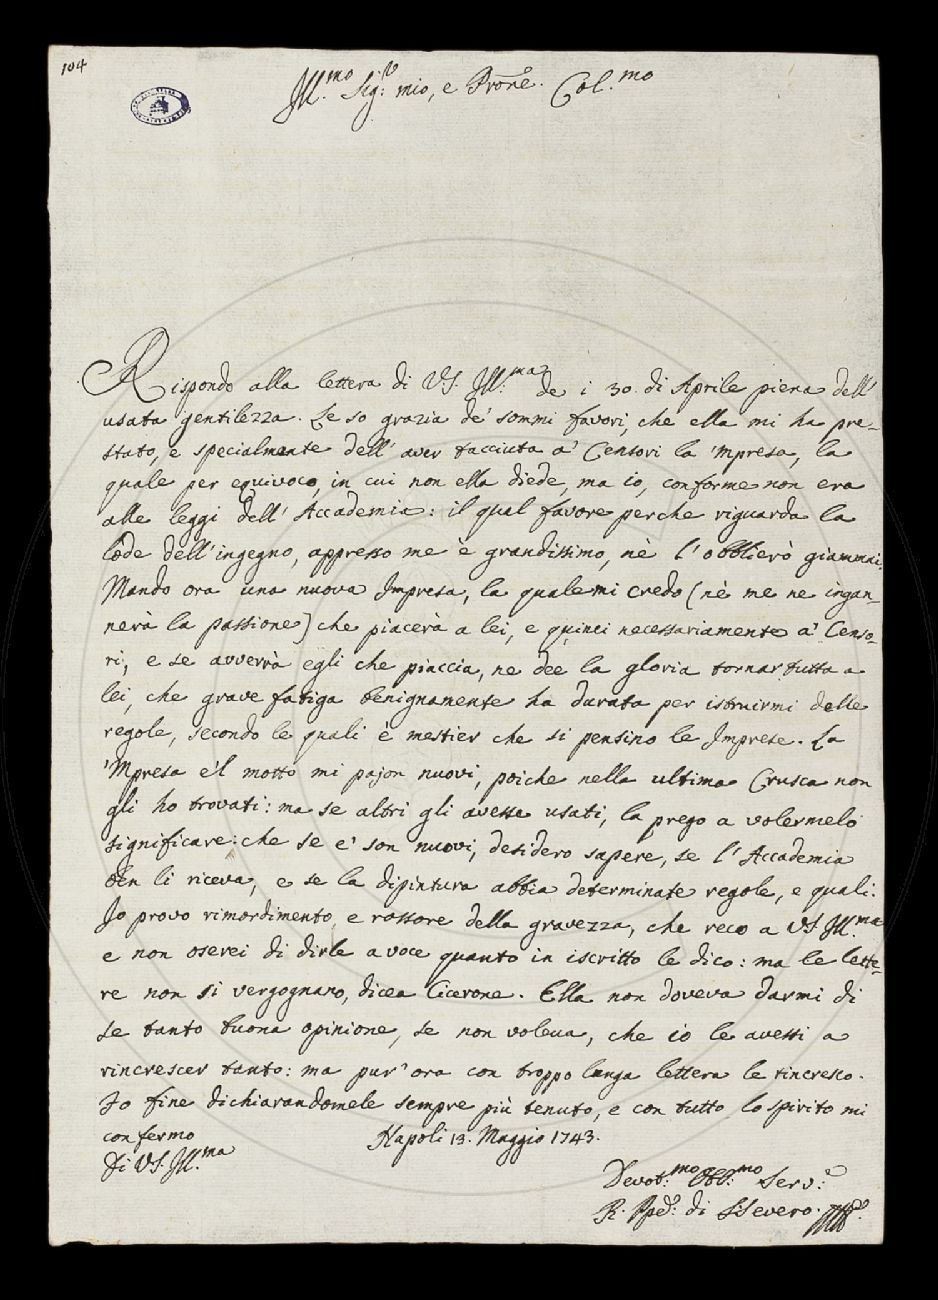 104
Ill.mo Sig.re mio, e Prone. Col.mo
Rispondo alla lettera di V.S. Ill.ma de i 30. di Aprile piena dell'
usata gentilezza. Le so grazia de' sommi favori, che ella mi ha pre-
stato, e specialmente dell' aver tacciuta a' Censori la 'mpresa, la
quale per equivoco, in cui non ella diede, ma io, conforme non era
alle leggi dell' Accademia: il qual favore perche riguarda la
lode dell'ingegno, appresso me è grandissimo, nè l'obblierò giammai.
Mando ora una nuova Impresa, la quale mi credo (nè me ne ingan-
nerà la passione) che piacerà a lei, e quinci necessariamente a' Censo-
ri; e se avverrà egli che piaccia, ne dee la gloria tornar tutta a
lei, che grave fatiga benignamente ha durata per istruirmi delle
regole, secondo le quali è mestier che si pensino le Imprese. La
'Mpresa e'l motto mi pajon nuovi, poiche nella ultima Crusca non
gli ho trovati: ma se altri gli avesse usati, la prego a volermelo
significare: che se e' son nuovi, desidero sapere, se l' Accademia
ben li riceva, e se la dipintura abbia determinate regole, e quali.
Io provo rimordimento e rossore della gravezza, che reco a VS. Ill.ma
e non oserei di dirle a voce quanto in iscritto le dico: ma le lette-
re non si vergognano, dicea Cicerone. Ella non doveva darmi di
se tanto buona opinione, se non voleva, che io le avessi a
rincrescer tanto: ma pur'ora con troppo lunga lettera le rincresco.
Io fine dichiarandomele sempre più tenuto, e con tutto lo spirito mi
confermo Napoli 13. Maggio 1743.
Di VS. Ill.ma
Devot.mo Obb.mo Serv.e
R. di S.Severo.